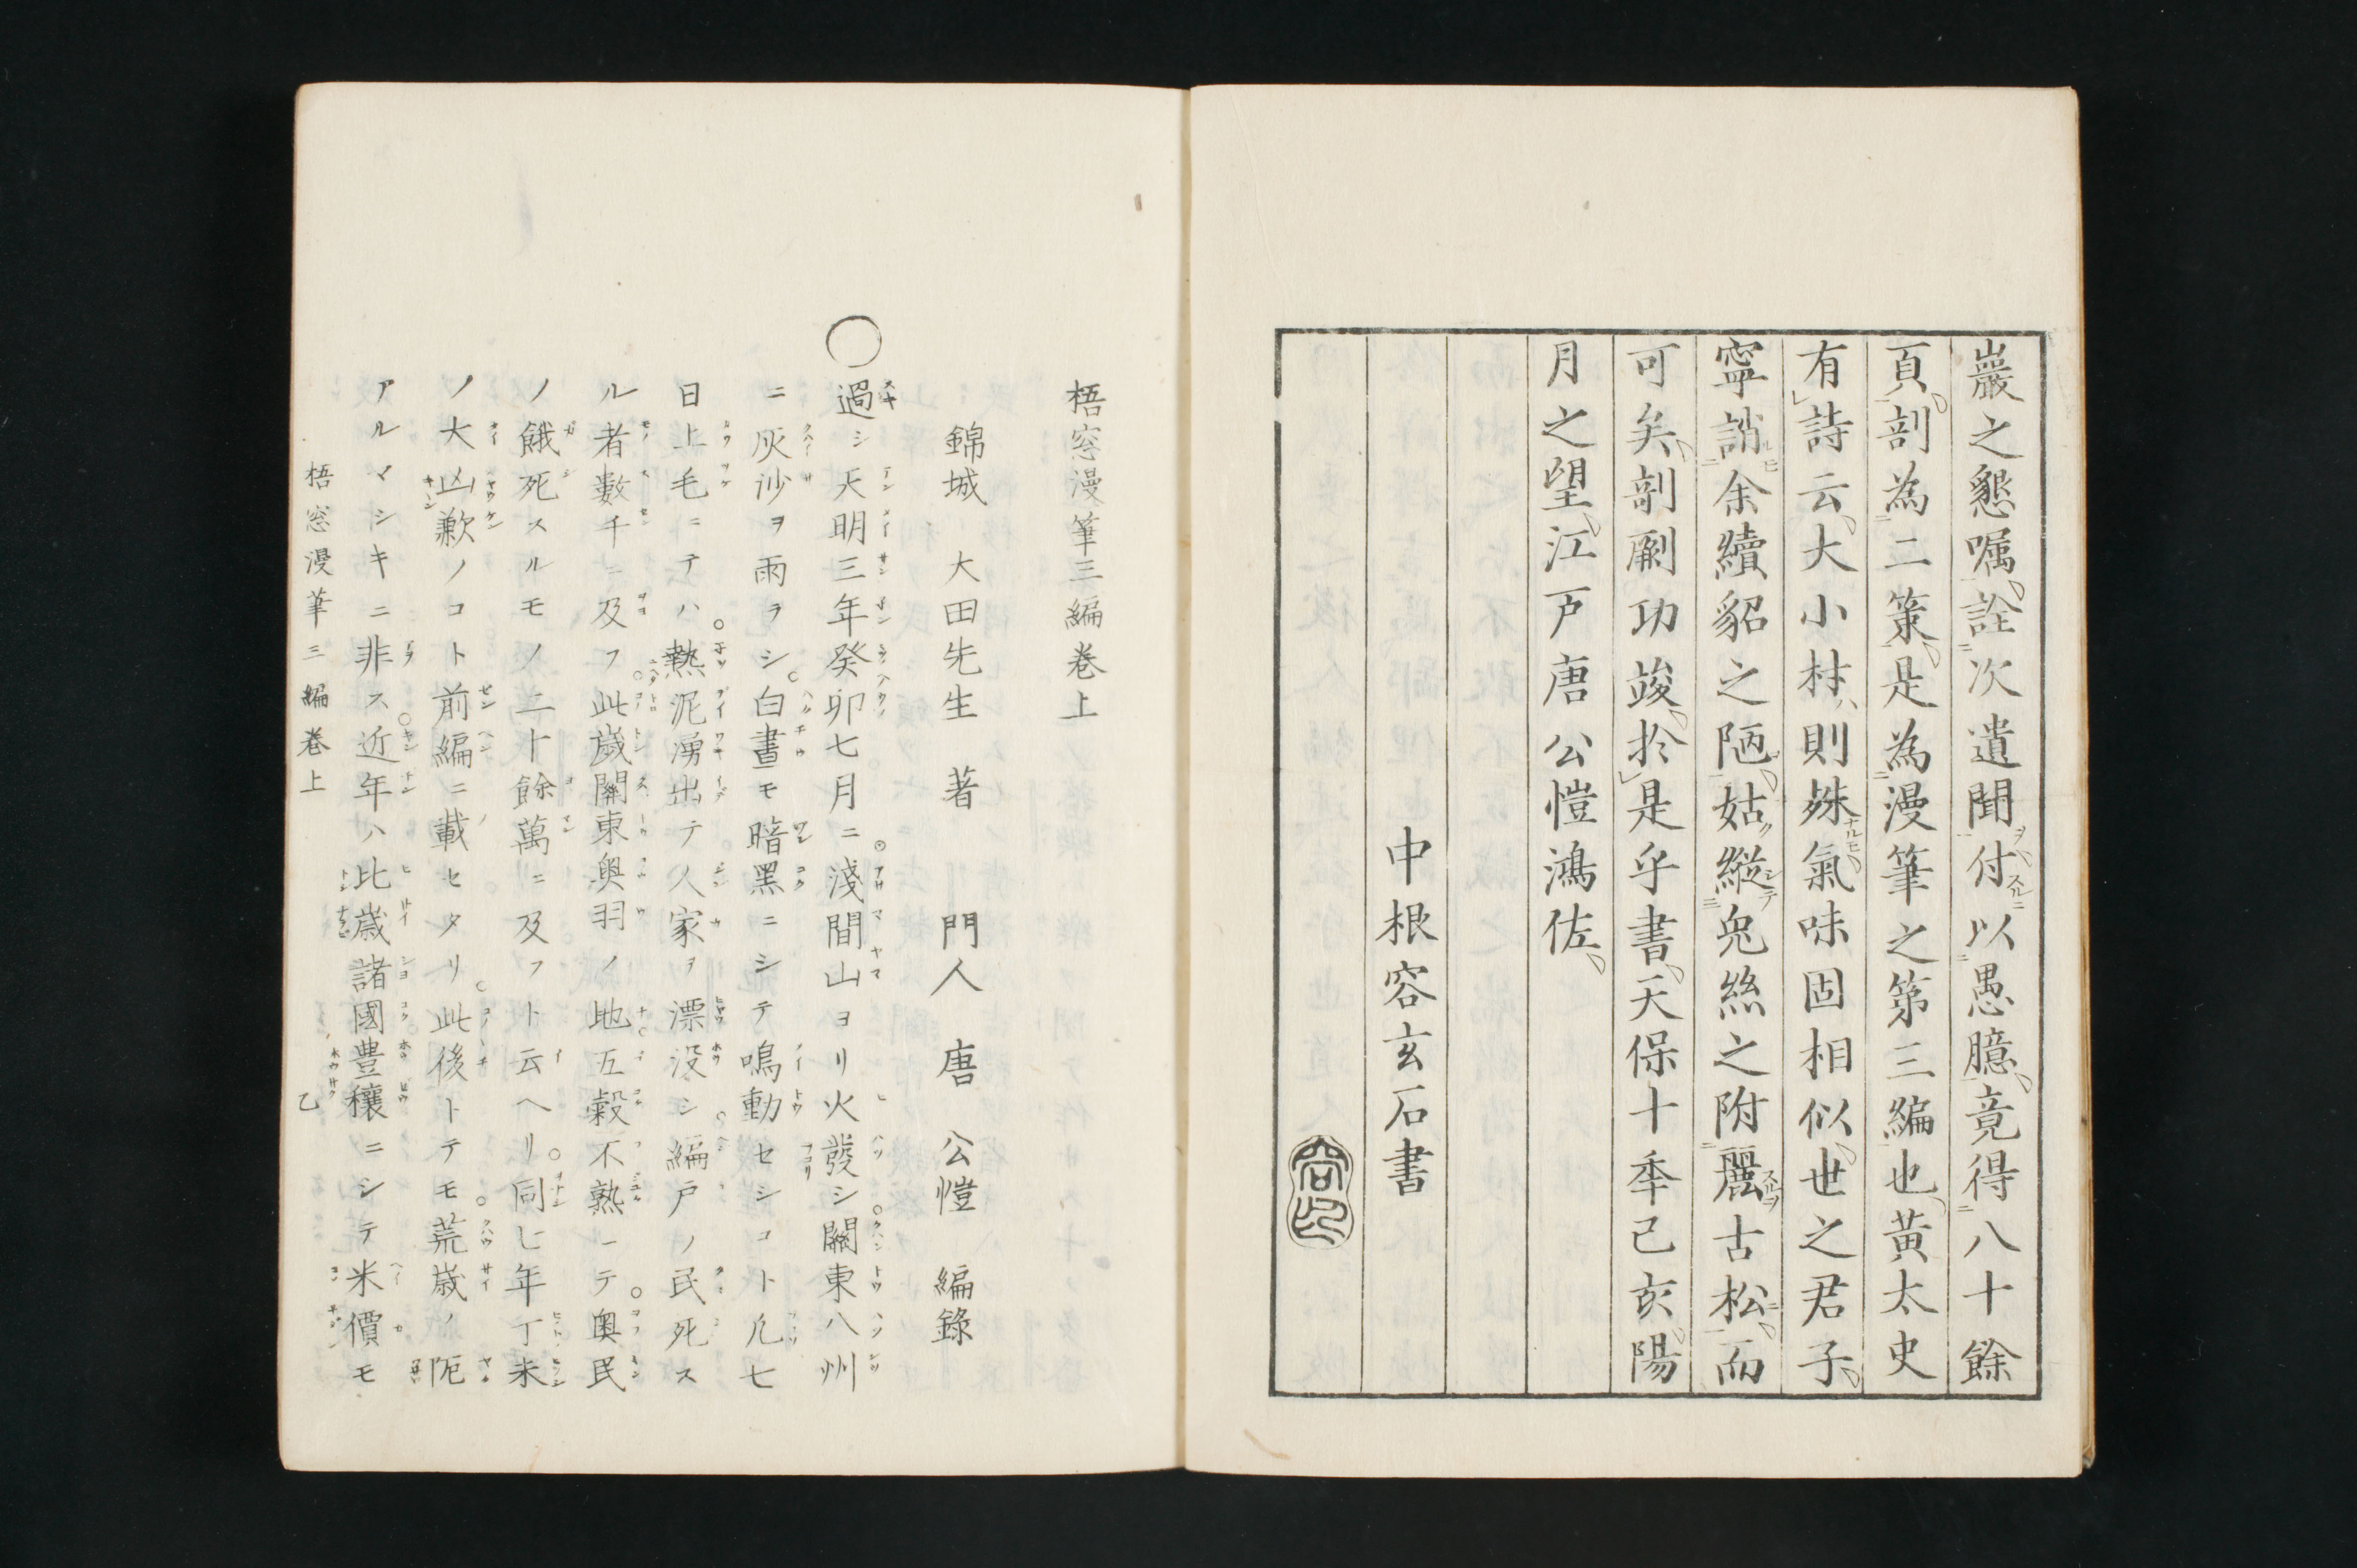 巖之懇嘱詮次遺聞付以愚臆竟得八十餘
頁剖為二策是為漫筆之第三編也黃太史
有詩云大小材則殊氣味固相似世之君子
寧誚余續貂之陋姑縱兔絲之附麗古松而
可矣剞劂功竣於是乎書天保十年己亥陽
月之望江戸唐公愷鴻佐
中根容玄石書
梧窓漫筆三編巻上
錦城 大田先生 著 門人 唐 公愷 編錄
○過シ天明三年癸卯七月ニ淺間山ヨリ火發シ關東八州
ニ灰沙ヲ雨ラシ白晝モ暗黑ニシテ鳴動セシコト凢七
日上毛ニテハ熱泥湧出テ人家ヲ漂没シ編戸ノ民死ス
ル者數千ニ及フ此歳關東奥羽ノ地五穀不熟ーテ奥民
ノ餓死スルモノ二十餘萬ニ及フト云ヘリ同七年丁未
ノ大凶歉ノコト前編ニ載セタリ此後トテモ荒歳ノ阨
アルマシキニ非ス近年ハ比歳諸國豊穰ニシテ米價モ
梧窓漫筆三編巻上 乙